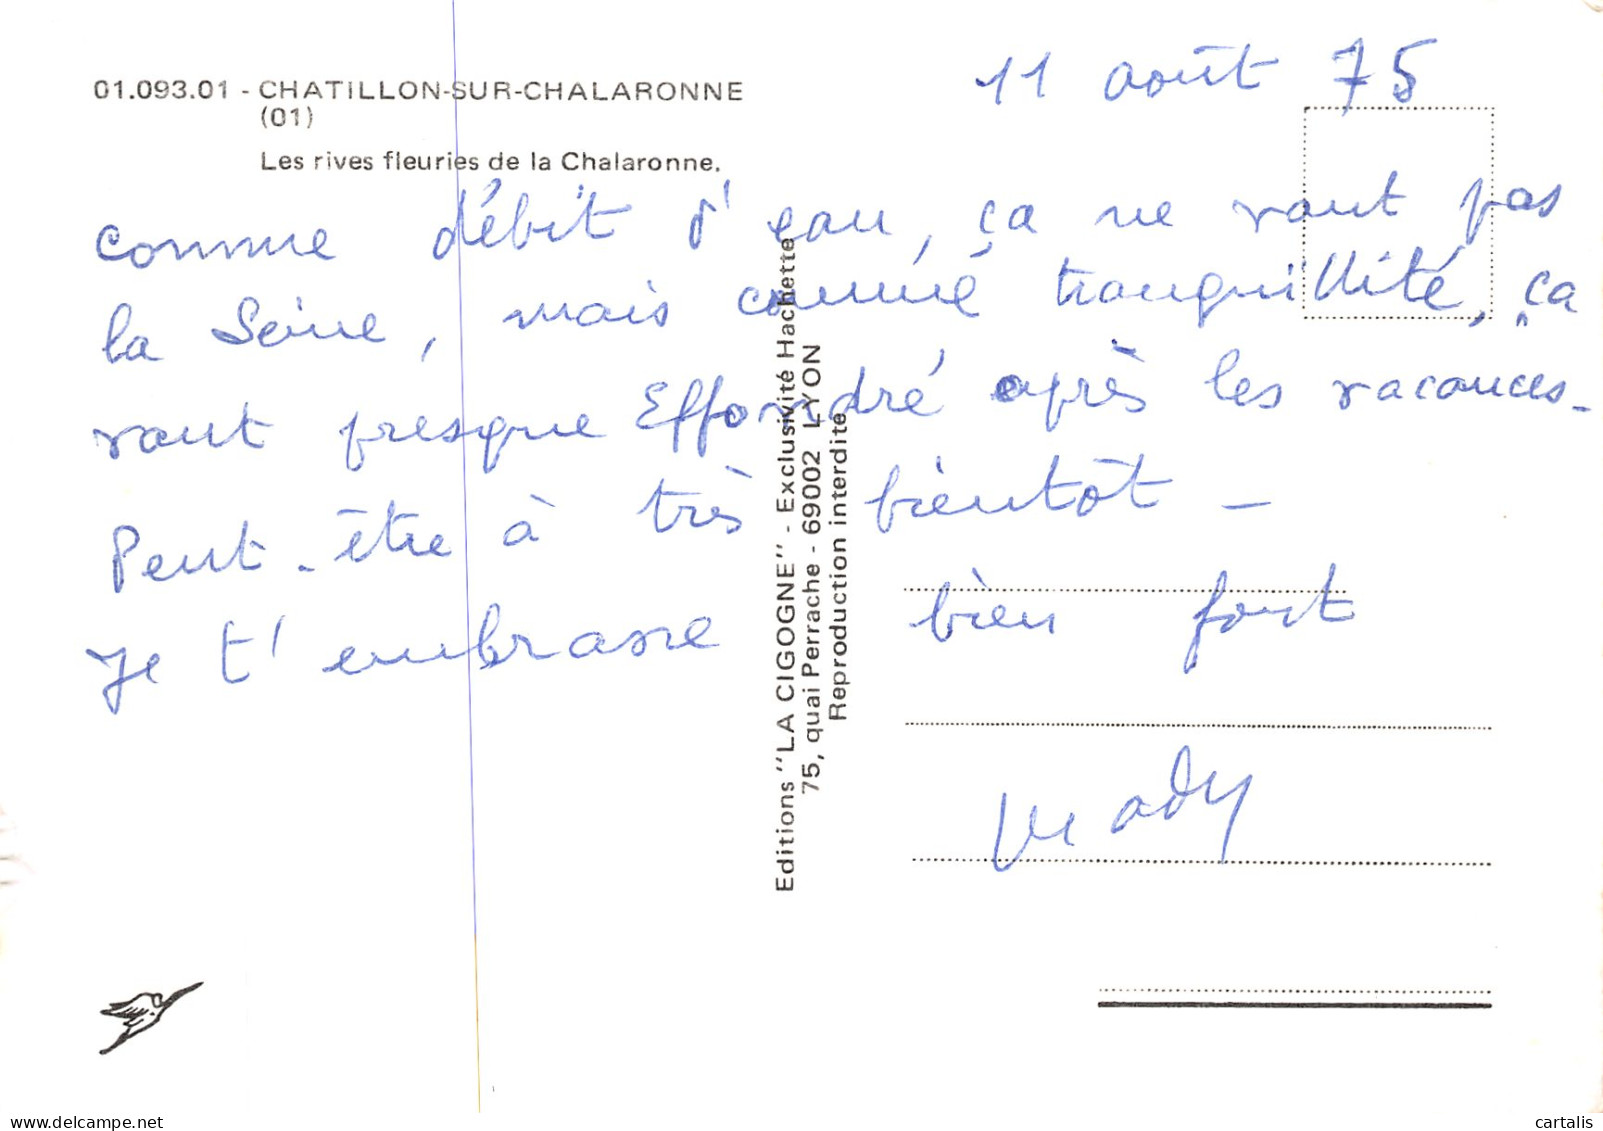 01.093.01 - CHATILLON-SUR-CHALARONNE
(01)
Les rives fleuries de la Chalaronne.
11 août 75
comme débit d'eau, ça ne vaut pas
la Seine, mais comme tranquillité, ça
vaut presque Effondré après les vacances.
Peut-être à très bientôt -
Je t'embrasse bien fort
Mady
Editions "LA CIGOGNE" - Exclusivité Hachette
75, quai Perrache - 69002 LYON
Reproduction interdite
delcampe.net
cartalis